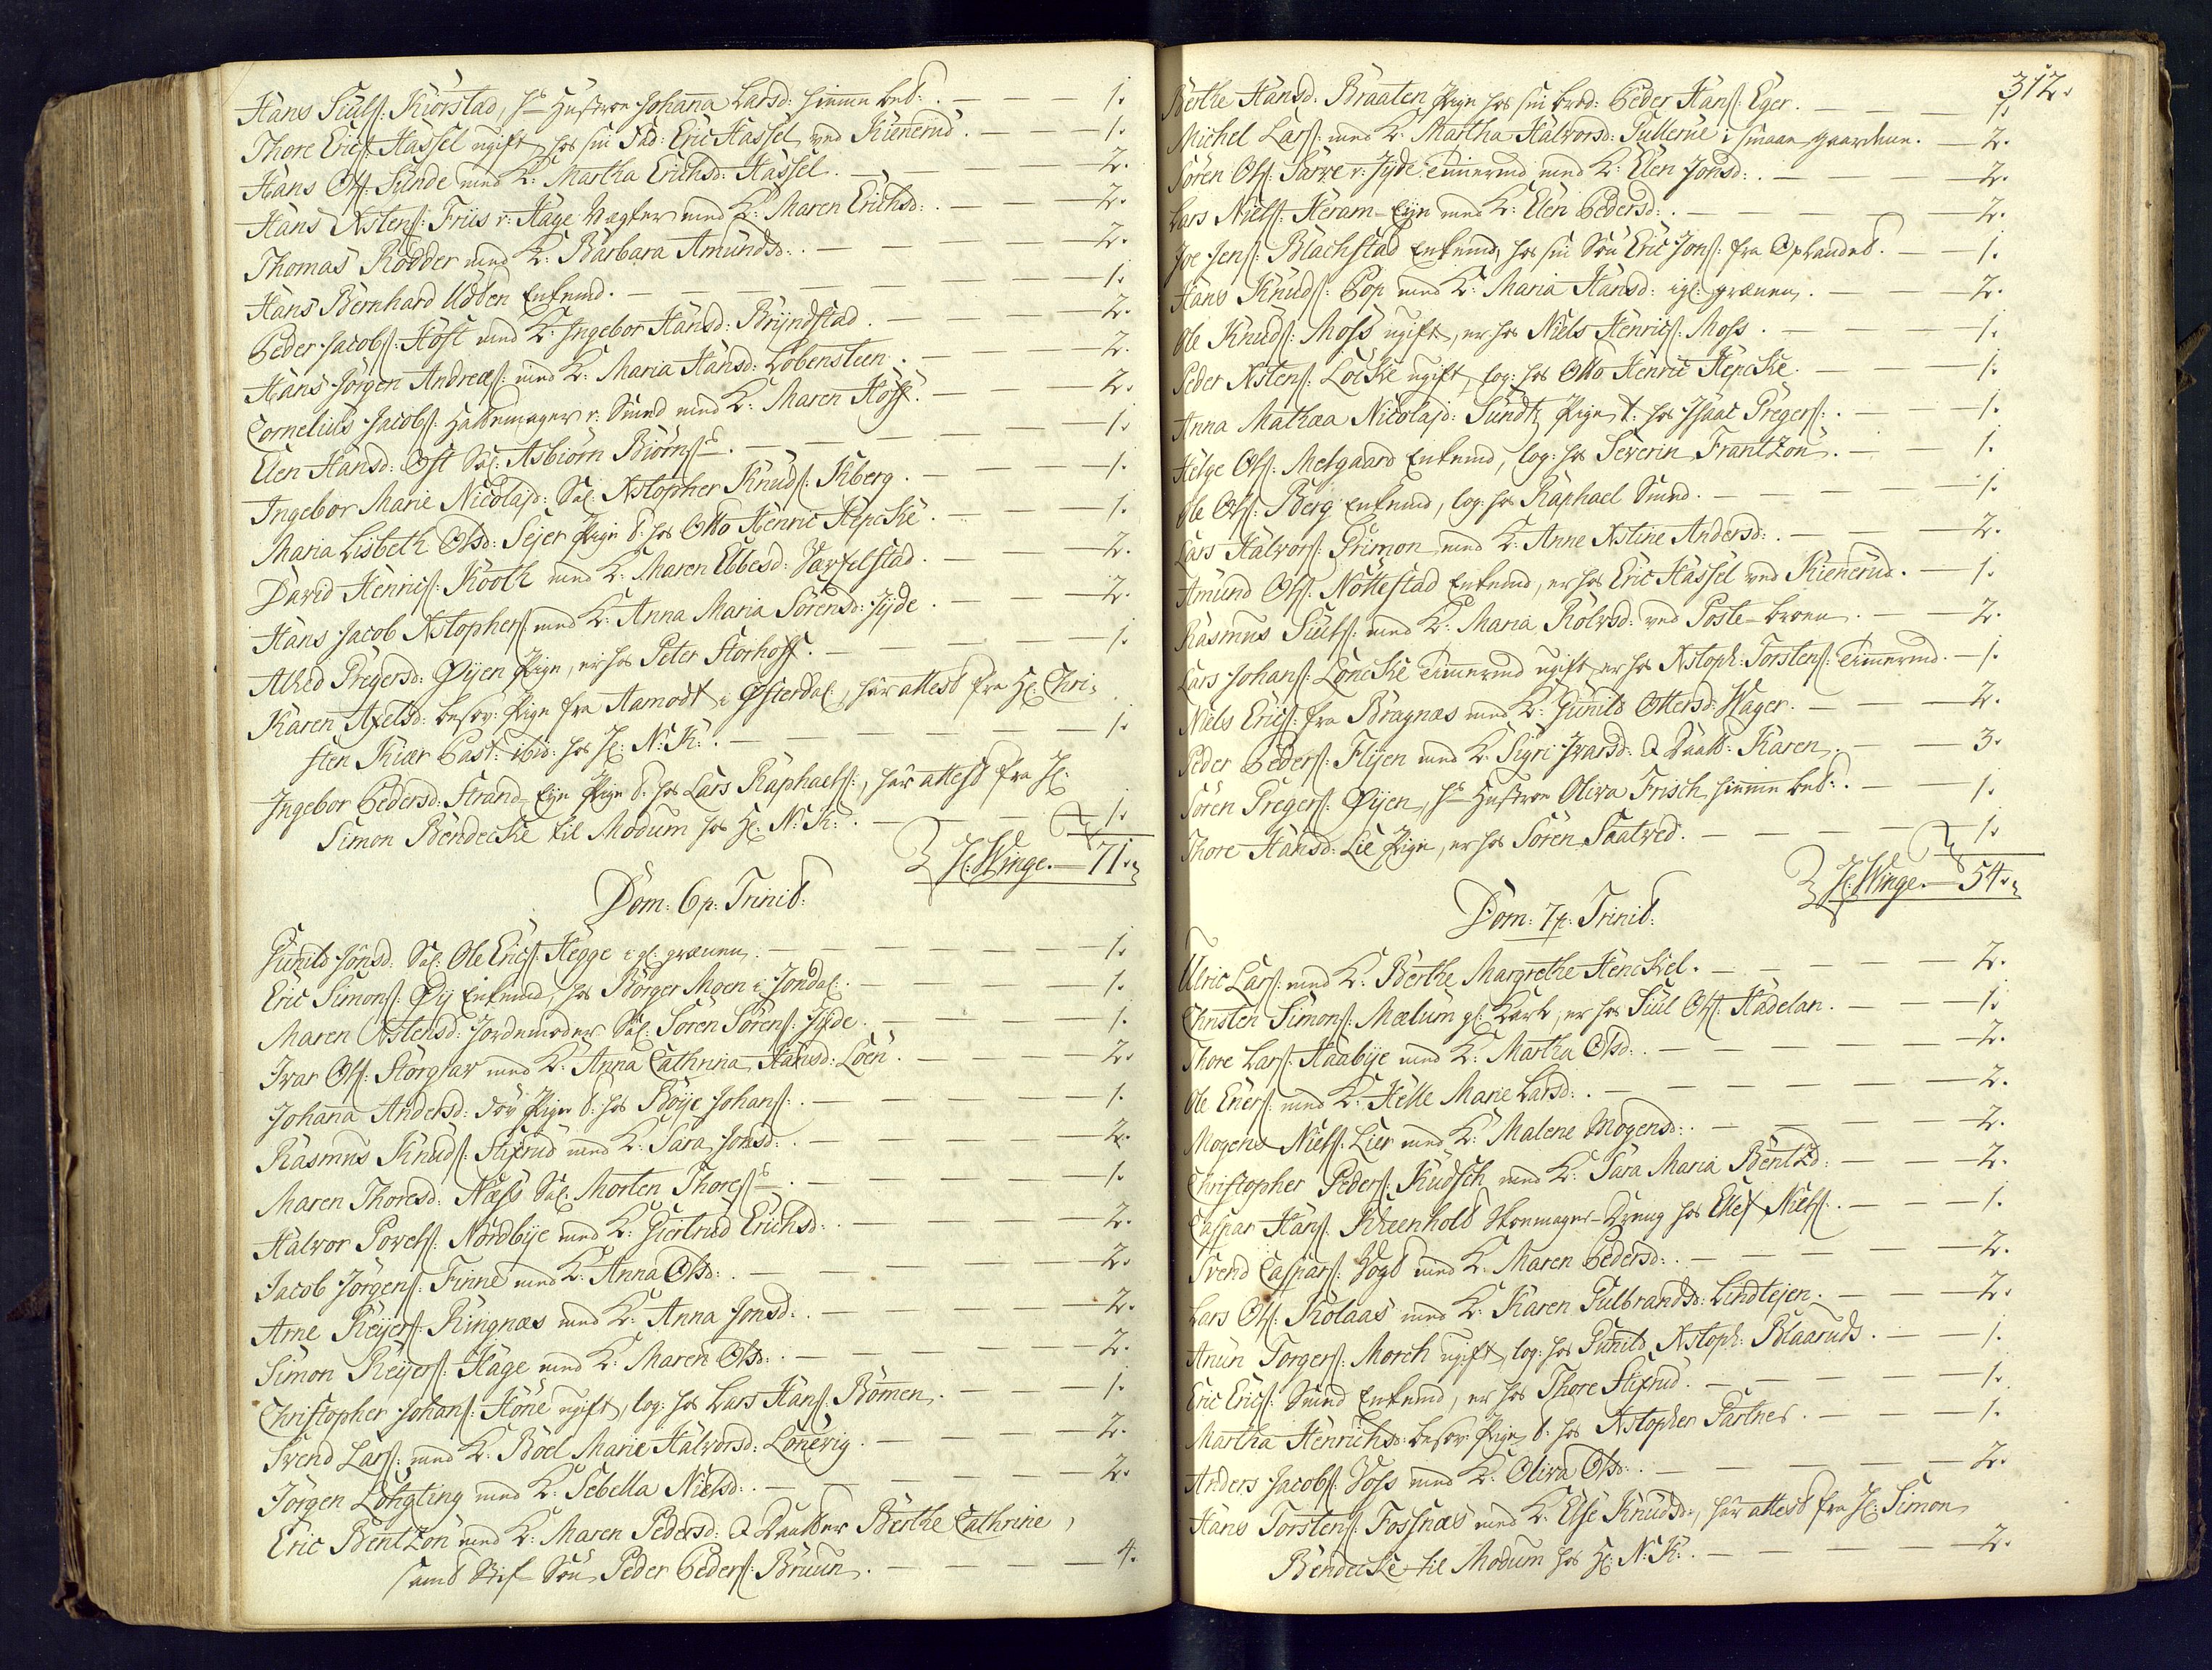 Hans Siuls: Kiørstad, hs Hustroe Johana Larsd: hieme ber: . — 1.
Thore Erics: Hassel ugift, hos sin Fad: Eric Hassel ved Kienerud. — 1.
Hans Ols: Sunde med K: Martha Erichsd: Hassel. — 2.
Hans Xstens: Friis v: Hage Vægter med K: Maren Erichsd: . — 2.
Thomas Rodder med K: Barbara Amundsd: . — 2.
Hans Bernhard Udden Enkemd. — 1.
Peder Jacobs: Høst med K: Ingebor Hansd: Bryndstad. — 2.
Hans Jørgen Andreæs: med K: Maria Hansd: Løbensteen. — 2.
Cornelius Jacobs: Hattemager v: Smed med K: Maren Hoff. — 2.
Elen Hansd: Ost Sal: Asbiørn Biørns: . — 1.
Ingebor Marie Nicolajd: Sal: Xstopher Knuds: Kberg. — 1.
Maria Lisbeth Olsd: Sejer Pige t: hos Otto Henric Hepcke. — 1.
David Henrics: Kooth med K: Maren Ebbesd: Varfelstad. — 2.
Hans Jacob Xstophers: med K: Anna Maria Sørensd: Jyde. — 2.
Alhed Gregersd: Øyen Pige, er hos Peter Storhoff. — 1.
Karen Axelsd: besov: Pige fra Aamodt i Østerdal, har attest fra Hr: Chri-
sten Kiær Past: ibid: hos Hr: N: K: . — 1.
Ingebor Pedersd: Strand Eyn Pige t: hos Lars Raphaels:, har attest fra Hr:
Simon Bendecke til Modum hos Hr: N: K: . — 1.
Hr: Winge. — 71.
Dom: 6 p: Trinit:
Gunild Jonsd: Sal: Ole Erics: Hegge i gl: grænen. — 1.
Eric Simons: Øy Enkemd, hos Børger Moen i Jondal. — 1.
Maren Xstensd: Jordemoder Sal: Søren Sørens: Jyde. — 1.
Ivar Ols: Storglav med K: Anna Cathrina Hansd: Loen. — 2.
Johana Andersd: døv Pige t: hos Bøye Johans: . — 1.
Rasmus Knuds: Stixrud med K: Sara Jonsd: . — 2.
Maren Thoresd: Næss Sal: Morten Thores: . — 1.
Halvor Povels: Nordbye med K: Giertrud Erichsd: . — 2.
Jacob Jørgens: Finne med K: Anna Olsd: . — 2.
Arne Reijers: Ringnæs med K: Anna Jonsd: . — 2.
Simon Reijers: Hage med K: Maren Olsd: . — 2.
Christopher Johans: Høne ugift, log: hos Lars Hans: Bømen. — 1.
Svend Lars: med K: Boel Marie Halvorsd: Lonevig. — 2.
Jørgen Løngting med K: Sebella Nielsd: . — 2.
Eric Bentzon med K: Maren Pedersd: & Daatter Berthe Cathrine,
samt Stif-Søn Peder Peders: Bruun. — 4.
312.
Berthe Hansd: Braaten Pige hos sin brod: Peder Hans: Eger. — 1.
Michel Lars: med K: Martha Halvorsd: Gullerue i smaae-gaardene. — 2.
Søren Ols: Sarre v: Jyde Timermd med K: Elen Jonsd: . — 2.
Lars Niels: Heram-Eyn med K: Elen Pedersd: . — 2.
Joe Jens: Blachstad Enkemd, hos sin Søn Eric Jons: fra Oplandet. — 1.
Hans Knuds: Pop med K: Maria Hansd: i gl: grænen. — 2.
Ole Knuds: Moss ugift, er hos Niels Henrics: Moss. — 1.
Peder Xstens: Locke ugift, log: hos Otto Henric Hepcke. — 1.
Anna Mathæa Nicolajd: Sundt, Pige, t: hos Isaac Gregers: . — 1.
Helge Ols: Melgaard Enkemd, log: hos Severin Frantzon. — 1.
Ole Ols: Berg Enkemd, log: hos Raphael Smed. — 1.
Lars Halvors: Grimon med K: Anne Xstine Andersd: . — 2.
Amund Ols: Nøttestad Enkemd, er hos Eric Hassel ved Kienerud. — 1.
Rasmus Siuls: med K: Maria Rolvsd: ved Poste-broen. — 2.
Lars Johans: Loncke Timermd ugift, er hos Xstoph: Torstens: Timermd. — 1.
Niels Erics: fra Bragnæs med K: Gunild Ottersd: Wager. — 2.
Peder Peders: Flijen med K: Sigri Ivarsd: & Daatt: Karen. — 3.
Søren Gregers: Øyen, hs Hustroe Oliva Frisch hieme ber: . — 1.
Thore Hansd: Lie Pige, er hos Søren Saatved. — 1.
Hr: Winge. — 54.
Dom: 7 p: Trinit:
Ulric Lars: med K: Berthe Margrethe Henckel. — 2.
Christen Simons: Mælum gl: Karl, er hos Siul Ols: Hadelan. — 1.
Thore Lars: Haabye med K: Martha Olsd: . — 2.
Ole Eners: med K: Helle Marie Larsd: . — 2.
Mogens Niels: Lier med K: Malene Mogensd: . — 2.
Christopher Peders: Kudsch med K: Sara Maria Bentzd: — 2.
Caspar Hans: Rheenholt Skoemager-Dreng hos Ellef Niels: . — 1.
Svend Caspars: Vogt med K: Maren Pedersd: . — 2.
Lars Ols: Kolaas med K: Karen Gulbrandsd: Lindtejen. — 2.
Anun Torgers: Morch ugift, log: hos Gunild Xstoph: Blaaruds. — 1.
Eric Erics: Smed Enkemd, er hos Thore Stixrud. — 1.
Martha Henrichsd: besov: Pige, t: hos Xstopher Gartner. — 1.
Anders Jacobs: Voss med K: Oliva Olsd: . — 2.
Hans Torstens: Fossnæs med K: Else Knudsd:, har attest fra Hr: Simon
Bendecke til Modum hos Hr: N: K: . — 2.